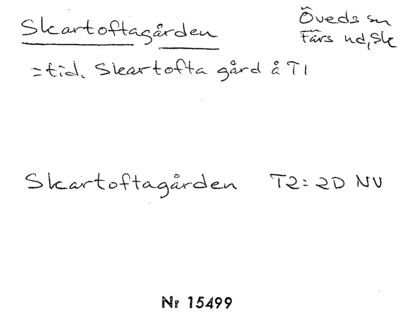 Skartoftagården
Öveds sn
Färs hd, Sk
= tid. Skartofta gård å T1
Skartoftagården T2: 2D NV
Nr 15499